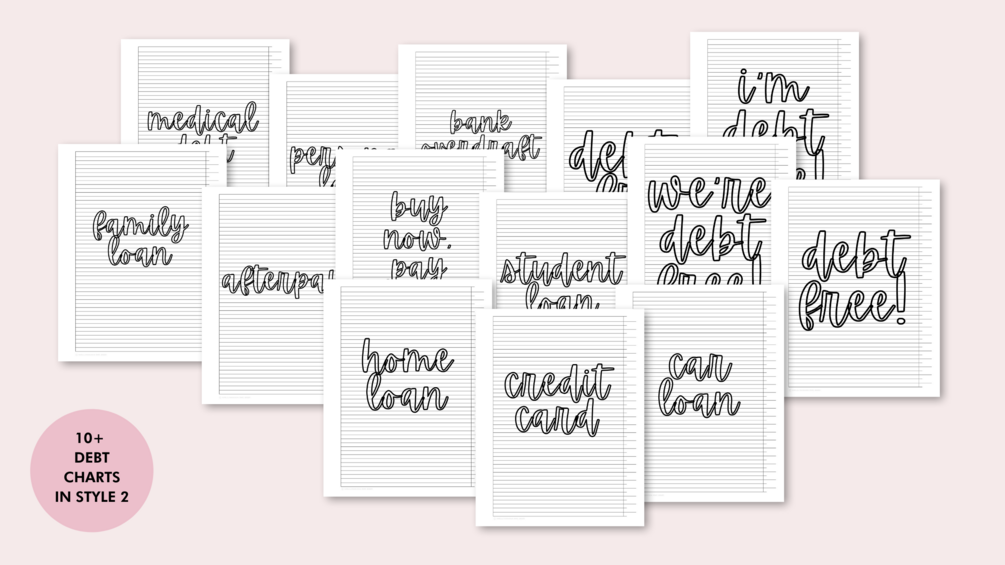 medical
debt
bank
overdraft
i'm
debt
family
loan
buy
now.
pay
student
loan
we're
debt
free!
debt
free!
afterpa
home
loan
credit
card
car
loan
10+
DEBT
CHARTS
IN STYLE 2